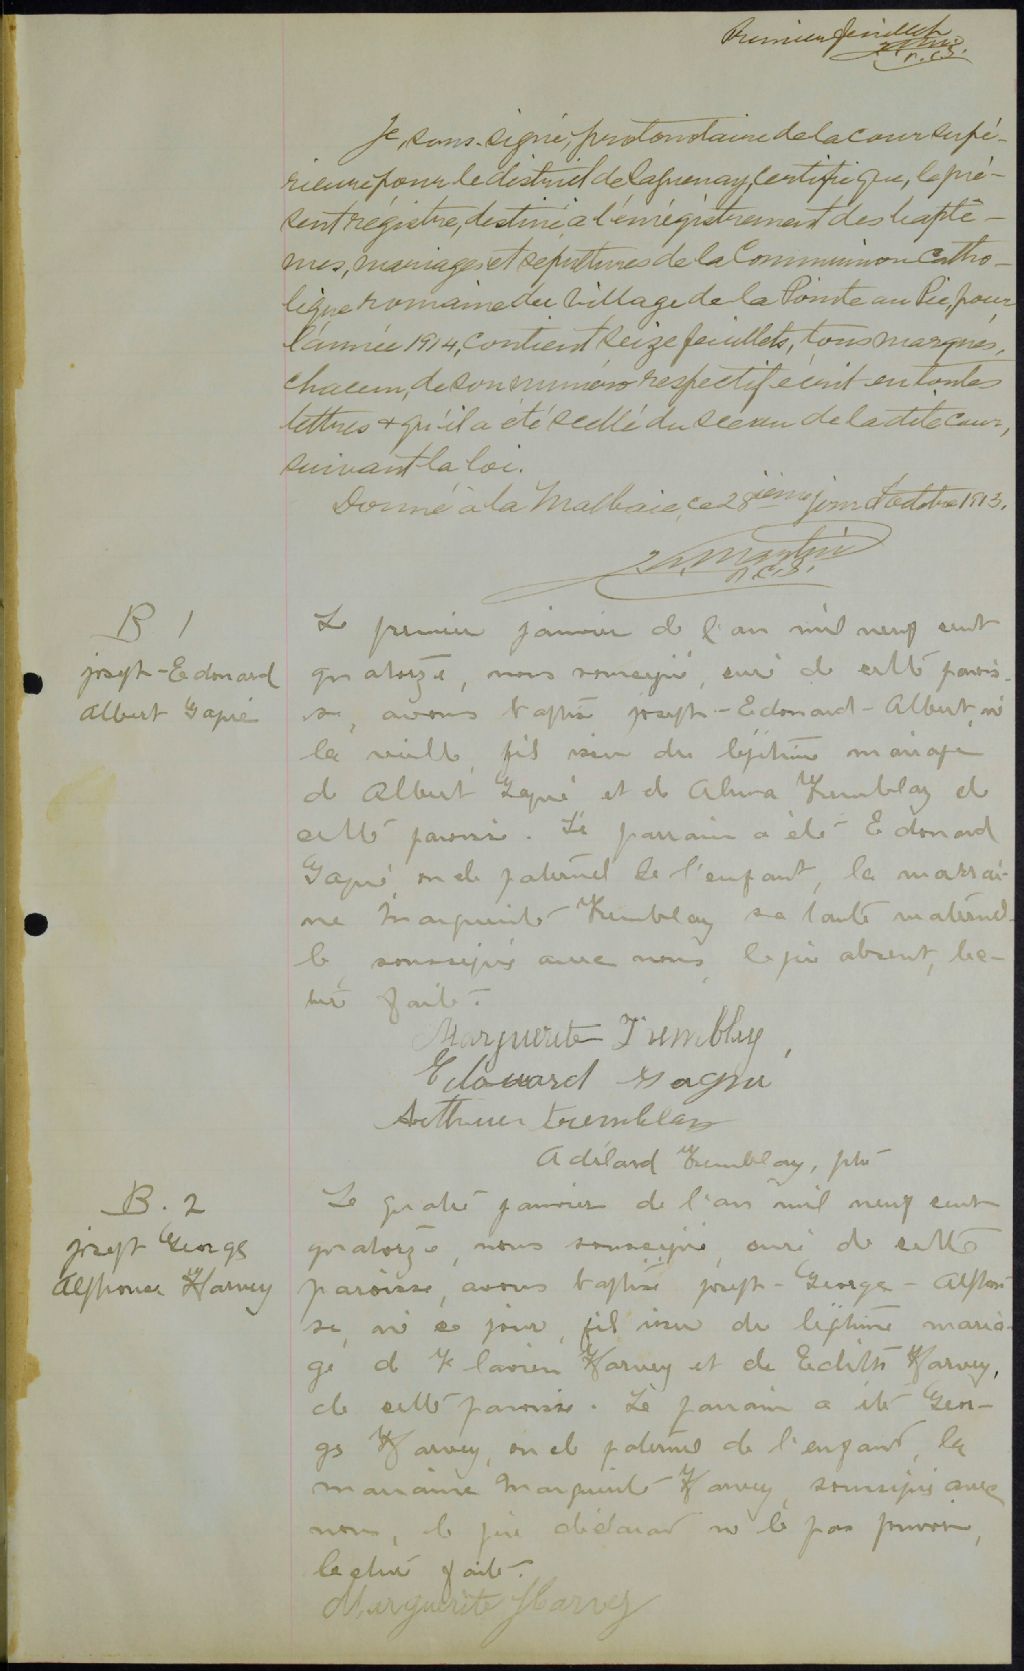 Premier feuillet
P.C.S.
Je, sous-signé, protonotaire de la cour supé-
rieure pour le district de Saguenay, certifie que, le pré-
sent régistre, destiné à l'énrégistrement des baptê-
mes, mariages et sépultures de la Communion Catho-
lique romaine du Village de la Pointe au Pic, pour
l'année 1914, contient seize feuillets, tous marqués,
chacun, de son numéro respectif écrit en toutes
lettres + qu'il a été scellé du sceau de la dite cour,
suivant la loi.
Donné à la Malbaie, ce 28ième jour d'octobre 1913.
Martin
P.C.S.
B 1
joseph-Edouard
Albert Gagné
Le premier janvier de l'an mil neuf cent
quatorze, nous soussigné, curé de cette parois-
se, avons baptisé joseph-Edouard-Albert, né
la veille, fils issu du légitime mariage
de Albert Gagné et de Alma Tremblay de
cette paroisse. Le parrain a été Edouard
Gagné oncle paternel de l'enfant, la marrai-
ne Marguerite Tremblay sa tante maternel-
le, soussignés avec nous, le père absent, lec-
ture faite.
Marguerite Tremblay,
Edouard Gagné
Arthur Tremblay
Adélard Tremblay, ptre
B. 2
joseph George
Alphonse Harvey
Le quatre janvier de l'an mil neuf cent
quatorze, nous soussigné, curé de cette
paroisse, avons baptisé joseph-George-Alphon-
se, né ce jour, fils issu du légitime maria-
ge de Flavien Harvey et de Edith Harvey,
de cette paroisse. Le parrain a été Geor-
ge Harvey, oncle paternel de l'enfant, la
marraine Marguerite Harvey, soussignés avec
nous, le père déclarant ne le pas pouvoir,
lecture faite.
Marguerite Harvey